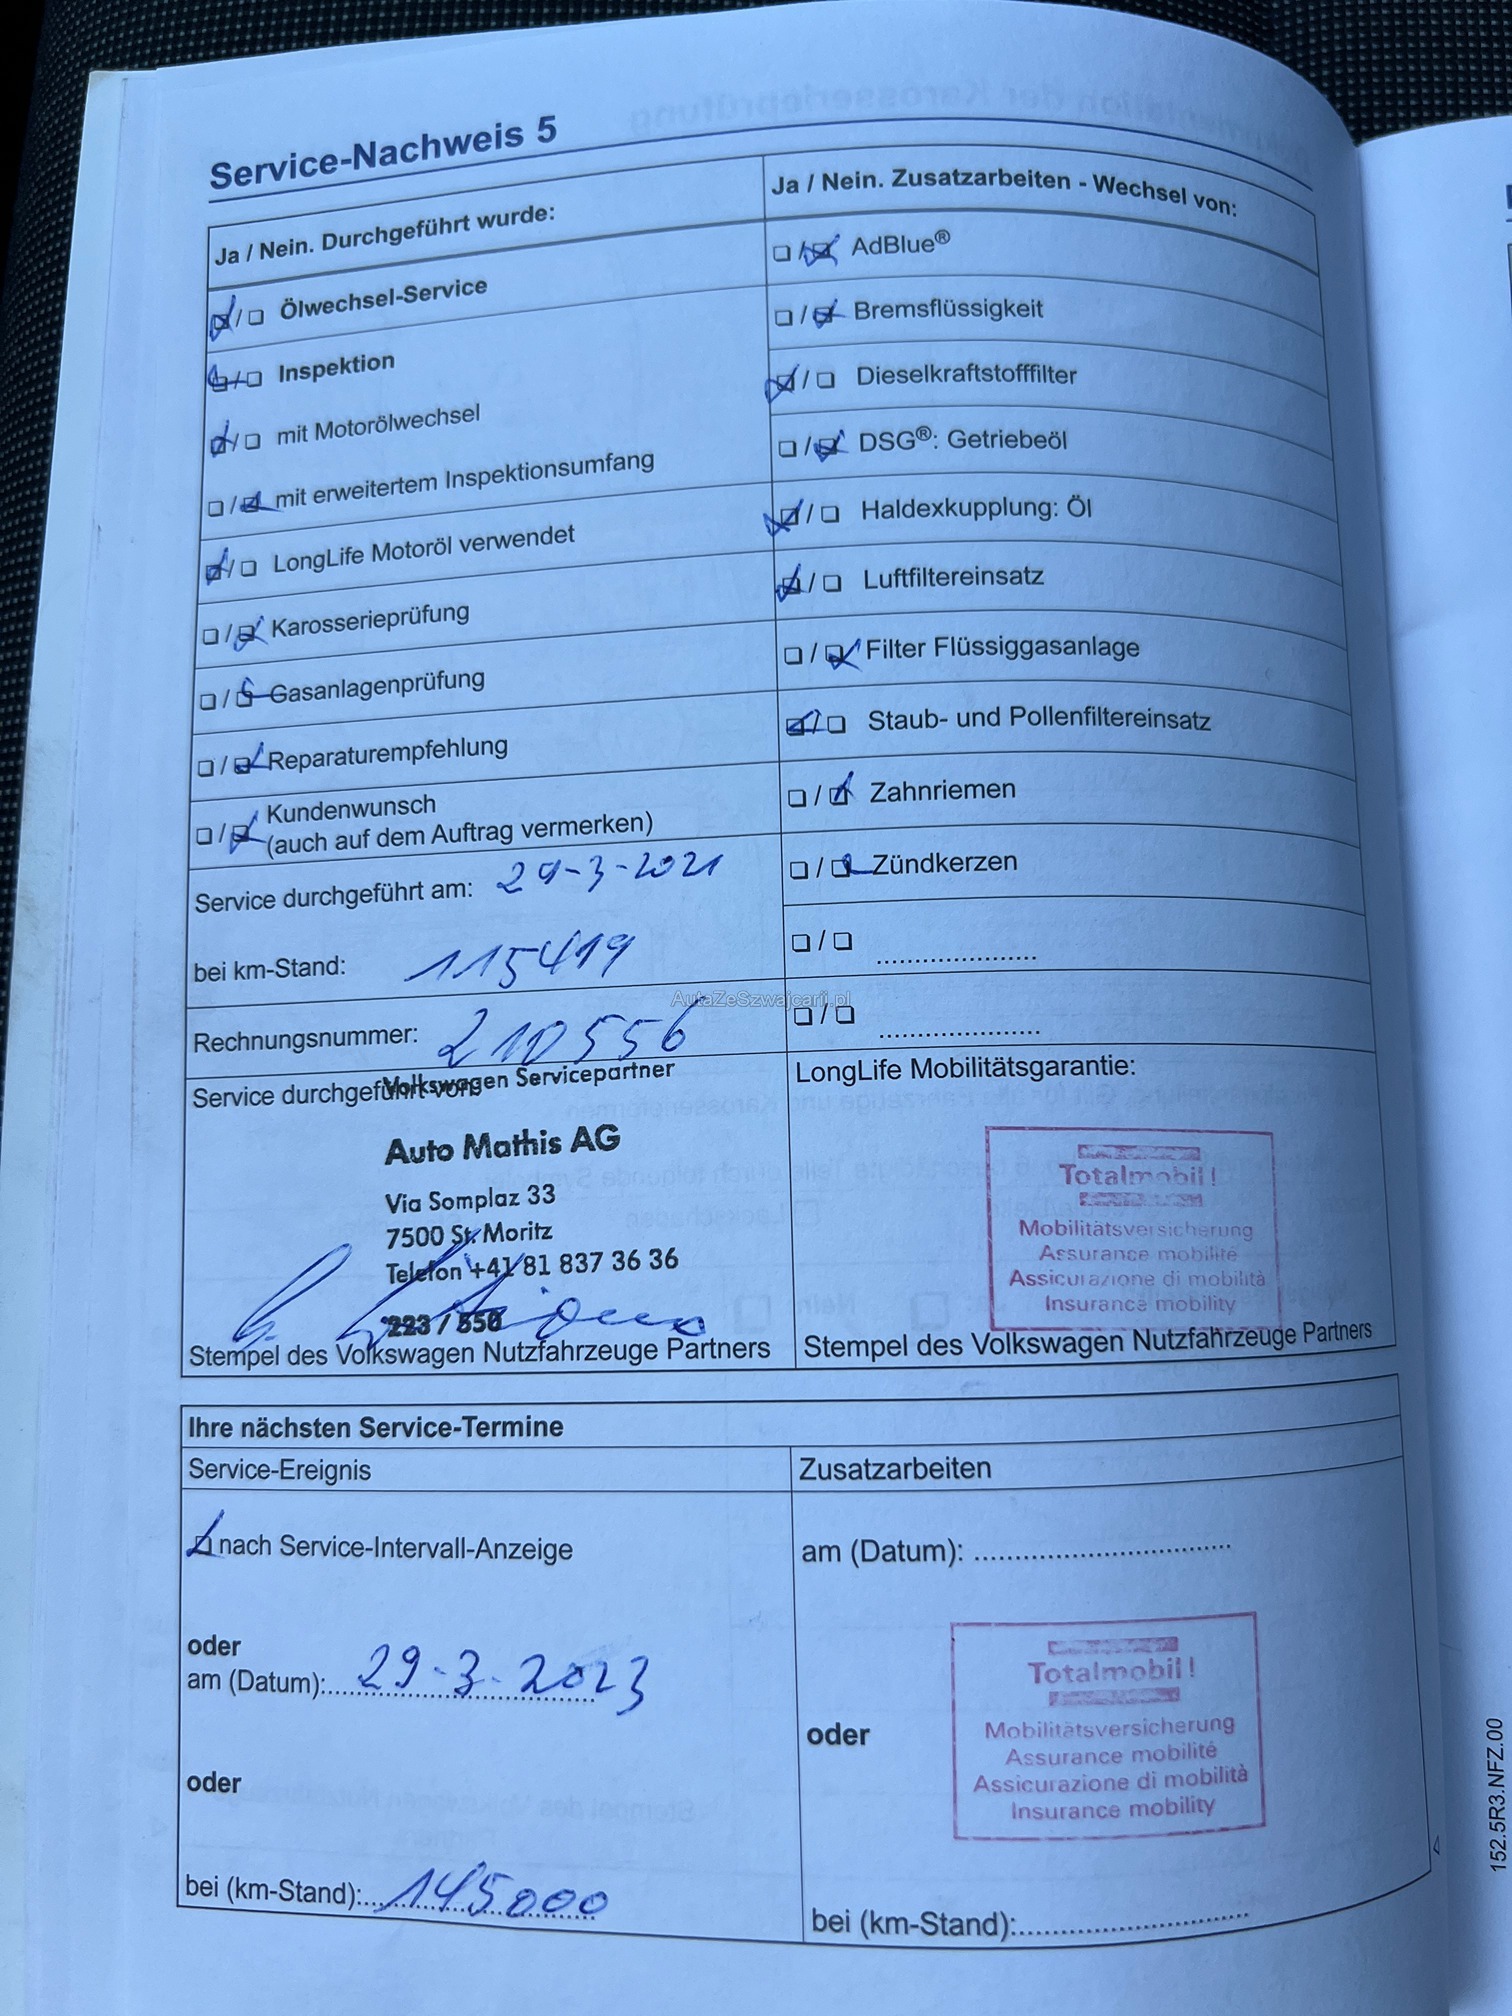 Service-Nachweis 5
Ja / Nein. Durchgeführt wurde:
/ Ölwechsel-Service
/ Inspektion
/ mit Motorölwechsel
/ mit erweitertem Inspektionsumfang
/ LongLife Motoröl verwendet
/ Karosserieprüfung
/ Gasanlagenprüfung
/ Reparaturempfehlung
/ Kundenwunsch
(auch auf dem Auftrag vermerken)
Service durchgeführt am: 29-3-2021
bei km-Stand: 115419
Rechnungsnummer: 210556
Service durchgeführt von:
Volkswagen Servicepartner
Auto Mathis AG
Via Somplaz 33
7500 St. Moritz
Telefon +41 81 837 36 36
223 / 550
Stempel des Volkswagen Nutzfahrzeuge Partners
Ja / Nein. Zusatzarbeiten - Wechsel von:
/ AdBlue®
/ Bremsflüssigkeit
/ Dieselkraftstofffilter
/ DSG®: Getriebeöl
/ Haldexkupplung: Öl
/ Luftfiltereinsatz
/ Filter Flüssiggasanlage
/ Staub- und Pollenfiltereinsatz
/ Zahnriemen
/ Zündkerzen
/ ........................
/ ........................
AutaZeSzwajcarii.pl
LongLife Mobilitätsgarantie:
Totalmobil!
Mobilitätsversicherung
Assurance mobilité
Assicurazione di mobilità
Insurance mobility
Stempel des Volkswagen Nutzfahrzeuge Partners
Ihre nächsten Service-Termine
Service-Ereignis
nach Service-Intervall-Anzeige
oder
am (Datum): 29-3-2023
oder
bei (km-Stand): 145000
Zusatzarbeiten
am (Datum): ........................
oder
Totalmobil!
Mobilitätsversicherung
Assurance mobilité
Assicurazione di mobilità
Insurance mobility
bei (km-Stand):........................
152.5R3.NFZ.00